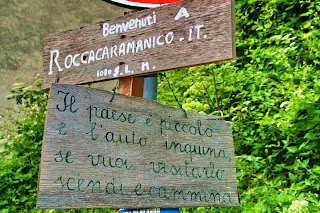 Benvenuti A
ROCCACARAMANICO.IT.
1080 S.L.M.
Il paese è piccolo
e l'auto inquina,
se vuoi visitarlo
scendi e cammina.